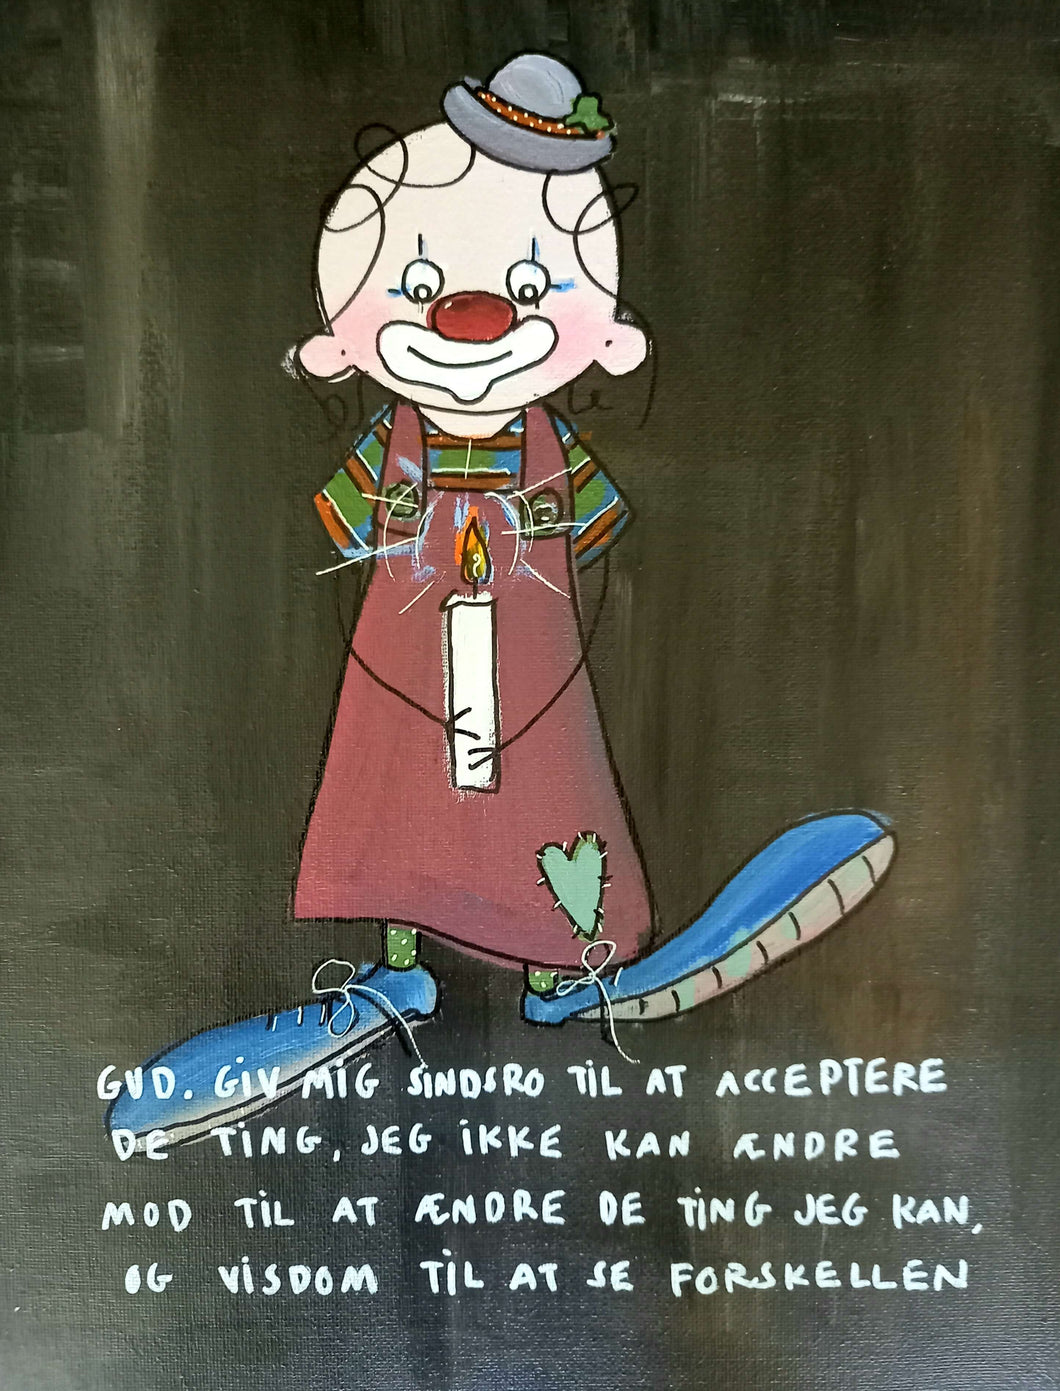 GUD. GiV MiG SiNDSRO TiL AT ACCEPTERE
DE TiNG, JEG iKKE KAN ÆNDRE
MOD TiL AT ÆNDRE DE TiNG JEG KAN,
OG ViSDOM TiL AT SE FORSKELLEN